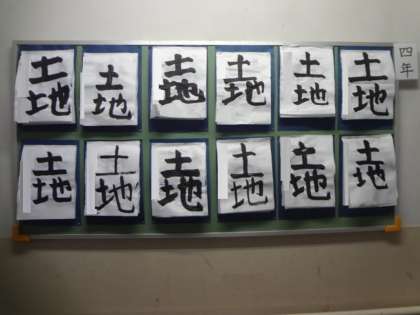 四年
土地
土地
土地
土地
土地
土地
土地
土地
土地
土地
土地
土地